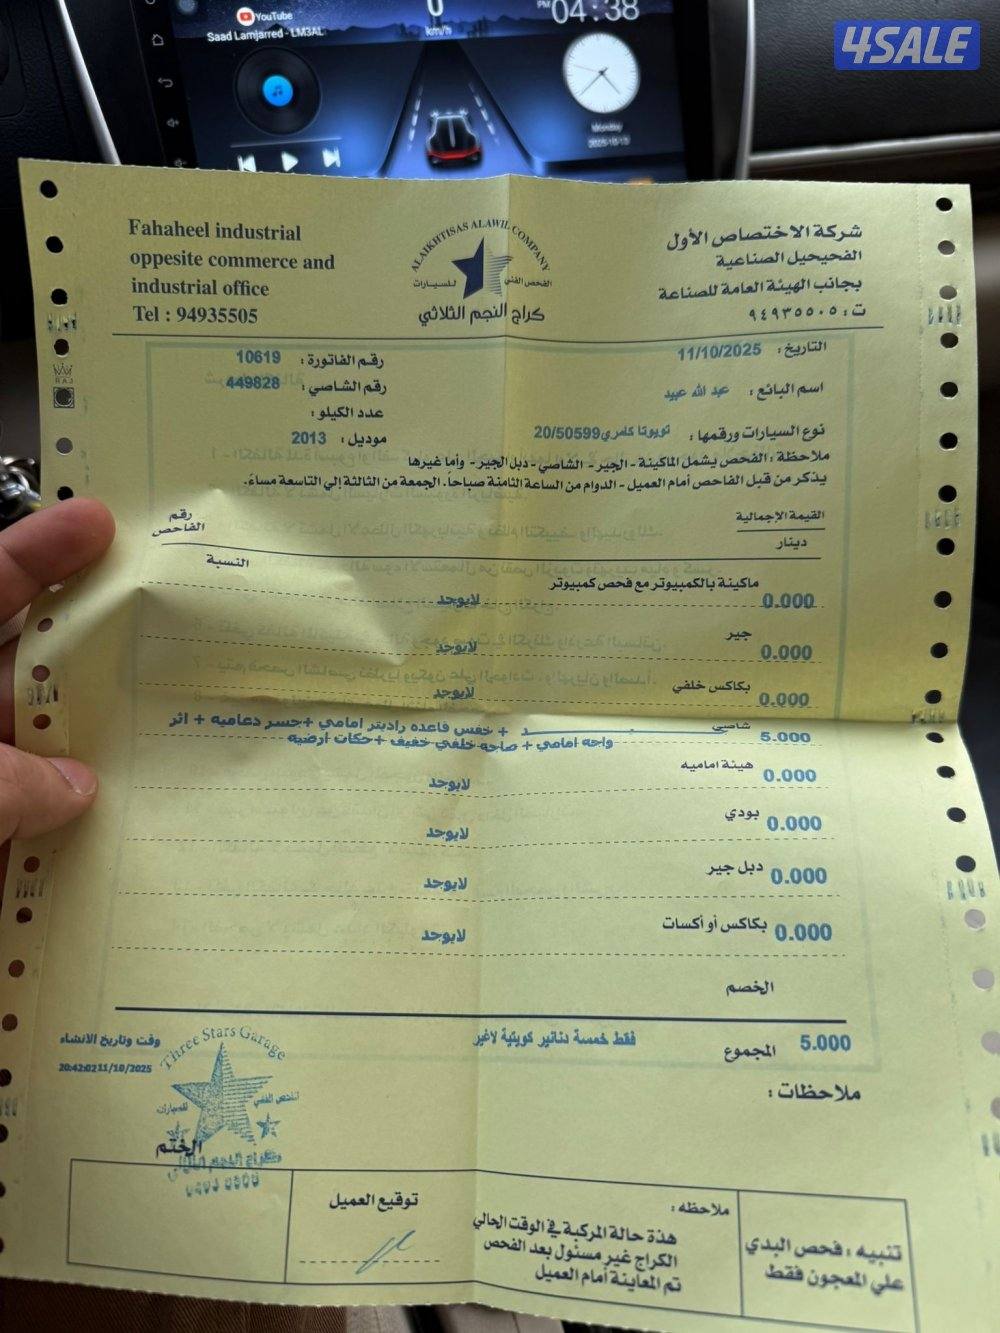 4SALE
YouTube
Saad Lamjarred - LM3AL
0
km/h
PM 04:38
Monday
2025-10-13
Fahaheel industrial
oppesite commerce and
industrial office
Tel : 94935505
ALAIKHTISAS ALAWIL COMPANY
الفحص الفني للسيارات
كراج النجم الثلاثي
شركة الاختصاص الأول
الفحيحيل الصناعية
بجانب الهيئة العامة للصناعة
ت : ٩٤٩٣٥٥٠٥
التاريخ : 11/10/2025
رقم الفاتورة : 10619
اسم البائع : عبد الله عبيد
رقم الشاصي : 449828
عدد الكيلو :
نوع السيارات ورقمها : تويوتا كامري20/50599
موديل : 2013
ملاحظة : الفحص يشمل الماكينة - الجير - الشاصي - دبل الجير - وأما غيرها
يذكر من قبل الفاحص أمام العميل - الدوام من الساعة الثامنة صباحاً. الجمعة من الثالثة إلي التاسعة مساءً.
القيمة الإجمالية
دينار
رقم الفاحص
النسبة
ماكينة بالكمبيوتر مع فحص كمبيوتر 0.000 لايوجد
جير 0.000 لايوجد
بكاكس خلفي 0.000 لايوجد
شاصي 5.000 + خفس قاعده راديتر امامي +جسر دعاميه + اثر
واجه امامي + صاجه خلفي خفيف +حكات ارضيه
هيئة اماميه 0.000 لايوجد
بودي 0.000 لايوجد
دبل جير 0.000 لايوجد
بكاكس أو أكسات 0.000 لايوجد
الخصم
المجموع 5.000 فقط خمسة دنانير كويتية لاغير
وقت وتاريخ الانشاء
20:42:02 11/10/2025
ملاحظات :
Three Stars Garage
الفحص الفني للسيارات
الختم
توقيع العميل
ملاحظه :
هذة حالة المركبة في الوقت الحالي
الكراج غير مسئول بعد الفحص
تم المعاينة أمام العميل
تنبيه : فحص البدي
علي المعجون فقط